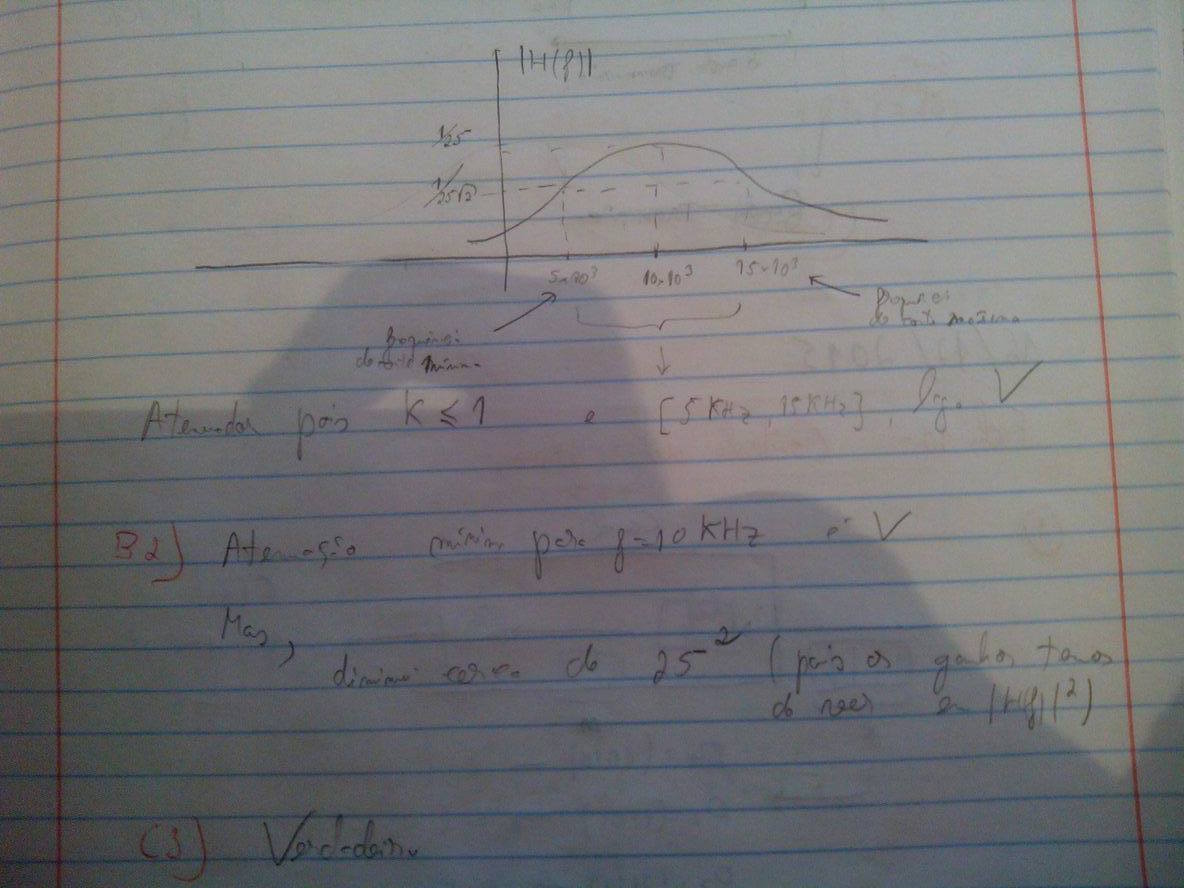 |H(f)|
1/25
1/25√2
5×10³ 10×10³ 15×10³
de corte máxima
de corte mínima
Atenuador pois K ≤ 1 e [5 KHz, 15 KHz], log. V
B2) Atenuação mínima para f=10 KHz é V
Mas,
diminui cerca de 25² (pois os ganhos temos
de ver em |H(f)|²)
C3) Verdadeiro